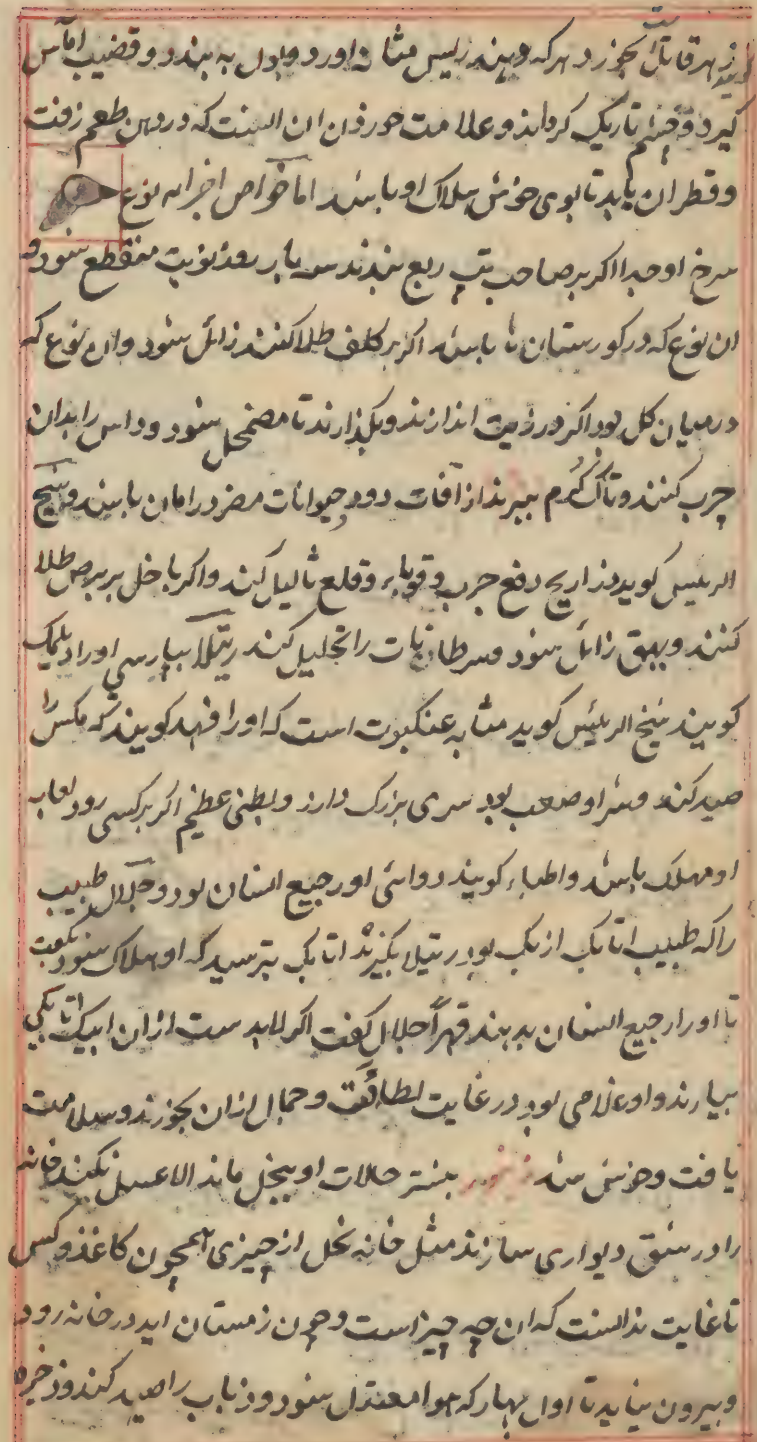 زهر قاتل است بخورد هر که دهند ریش مثانه اورد و بول به بندد و قضیب اماس
کیرد و چشم تاریک کرداند و علامت خوردن ان انست که در دهن طعم زفت
و قطران یابد تا بوی خوش هلاک او باشد اما خواص اجزاء نوع
سرخ او جدا اکر بر صاحب تب ربع بندند سه بار روز نوبت منقطع شود و
ان نوع که در کورستان ها باشد اکر بر کلف طلا کنند زائل شود وان نوع که
درمیان کل بود اکر در زیت اندازند و بکذارند تا مضمحل شود و داس را بدان
چرب کنند و تاک کرم ببرند از آفات دود و حیوانات مضر در امان باشد و شیخ
الرییس کوید ذراریح دفع جرب و قوبا و قلع ثالیل کند واکر با خل بر برص طلا
کنند و بهق زائل شود و سرطانات را تحلیل کند رتیلا بپارسی اورا دیلمک
کویند شیخ الرییس کوید مشابه عنکبوت است که اورا فهد کویند که مکس را
صید کند و شر او صعب بود سری بزرک دارد و بطنی عظیم اکر بر کسی رود لعاب
او مهلک باشد واطباء کویند دوائی او رجیع انسان بود و جلال طبیب
را که طبیب اتابک ازبک بود رتیلا بکزید اتابک بترسید که او هلاک شود بکفت
تا اورا رجیع انسان بدهند قهرا جلال کفت اکر لابدست ازان ایبک اتابکی
بیارند و او غلامی بود در غایت لطافت و جمال ازان بخورند و سلامت
یافت و خوش شد زنبور بیشتر حالات او بنحل ماند الا عسل نکند خانه
را در شق دیواری سازند مثل خانه نحل از چیزی همچون کاغذ و کس
تا غایت ندانست که ان چه چیز است و چون زمستان اید در خانه رود
و بیرون نیاید تا اول بهار که هوا معتدل شود و ذباب را صید کند و ذخیره